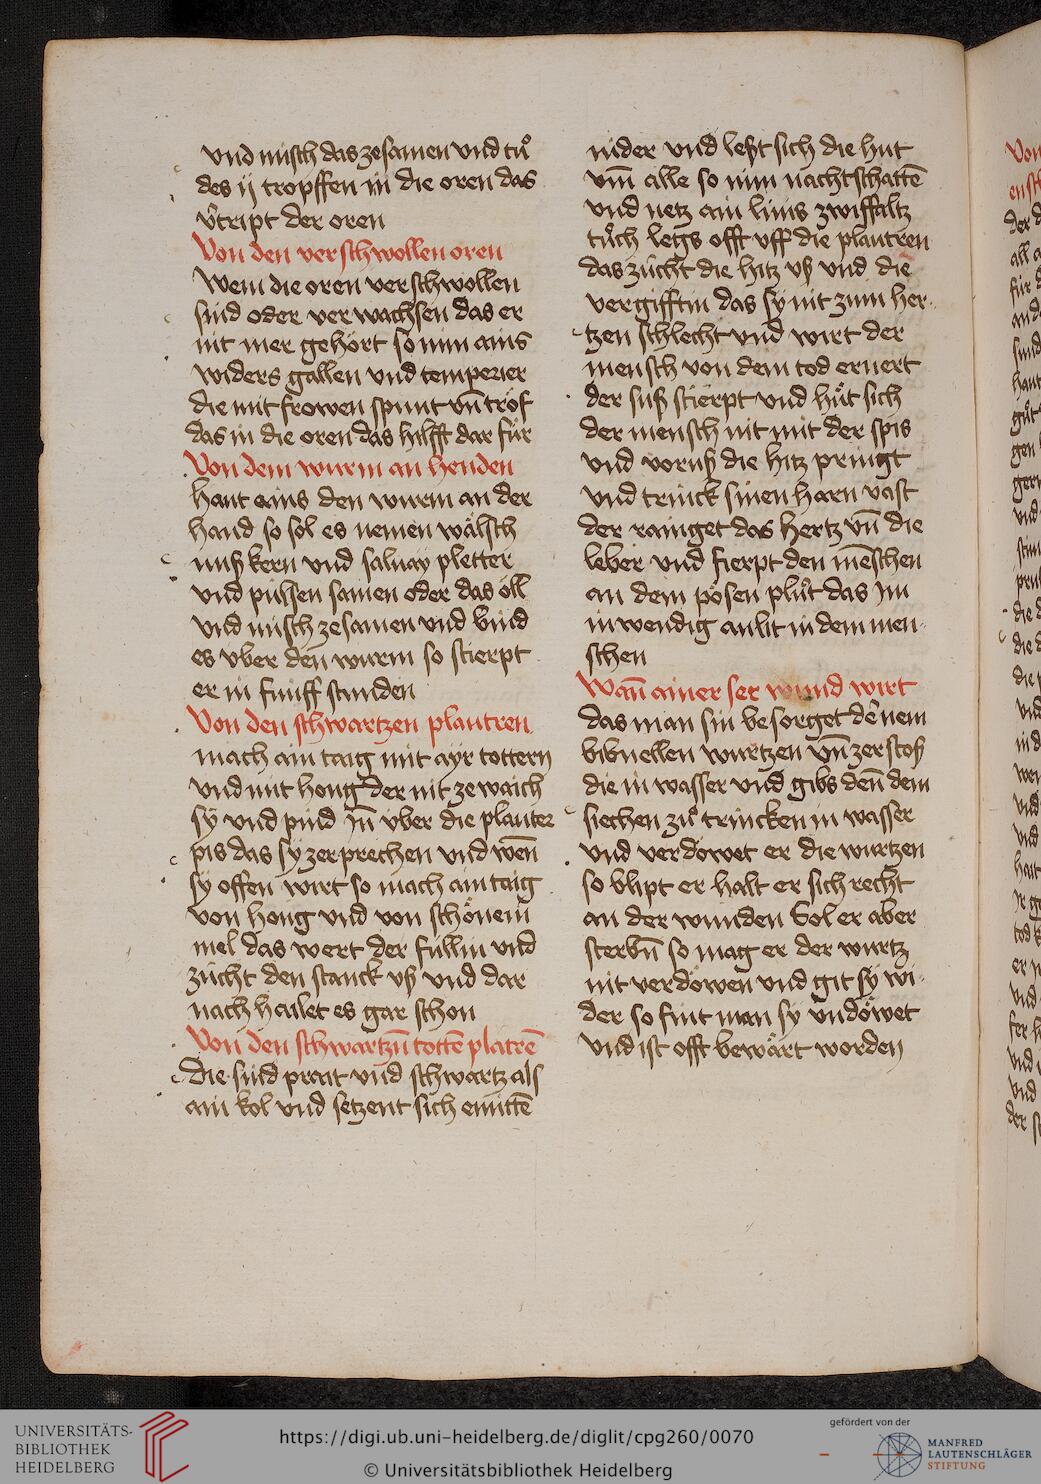 vnd misch das zesamen vnd tuͦ
des ij tropffen in die oren das
v̉tript der oren
Von den verschwollen oren
Wem die oren verschwollen
sind oder verwachsen das er
nit mer gehört so nim ains
widers gallen vnd temperier
die mit frowen spünt vn̄ tröf
das in die oren das hilfft dar für
Von dem wurm an henden
haut ains den wurm an der
hand so sol es nemen wälsch
nuß kern vnd saluay pletter
vnd pülsen samen oder das öll
vnd misch zesamen vnd bind
es vber den wurm so stierpt
er in fünff stunden
Von den schwartzen plautren
mach ain taig mit ayr tottern
vnd mit hong der nit ze waich
sÿ vnd pind In̄ vber die plauter
pis das sÿ zerprechen vnd wen̄
sÿ offen wirt so mach ain taig
von hong vnd von schönem
mel das wert der füllin vnd
zücht den stanck vß vnd dar
nach hailet es gar schon
Von den schwartzn̄ tottē platrē
die sind prait vnd schwartz als
ain kol vnd setzent sich emittē
nider vnd leßt sich die hut
vm̄ alle so nim nachtschattē
vnd netz ain linis zwiffaltz
tuͦch legs offt vff die plautren
das zücht die hitz vß vnd die
vergifftin das sÿ nit zum her
tzen schlecht vnd wirt der
mensch von dem tod ernert
der suß stierpt vnd hüt sich
der mensch nit mit der spis
vnd voruß die hitz pringt
vnd trinck sinen harn vast
der rainget das hertz vn̄ die
leber vnd fierpt den mēschen
an dem pösen pluͦt das Im
inwendig anlit in dem men
schen
Wan̄ ainer ser wund wirt
das man sin besorget de nem
bibnellen wurtzen vn̄ zerstoß
die in wasser vnd gibs den̄ dem
siechen zuͦ trincken in wasser
vnd verdowet er die wurtzen
so blipt er halt er sich recht
an der wunden Sol er aber
sterbn̄ so mag er der wurtz
nit verdöwen vnd git sÿ wi
der so fint man sÿ vndöwet
vnd ist offt bewärt worden
UNIVERSITÄTS-
BIBLIOTHEK
HEIDELBERG
https://digi.ub.uni-heidelberg.de/diglit/cpg260/0070
© Universitätsbibliothek Heidelberg
gefördert von der
MANFRED
LAUTENSCHLÄGER
STIFTUNG